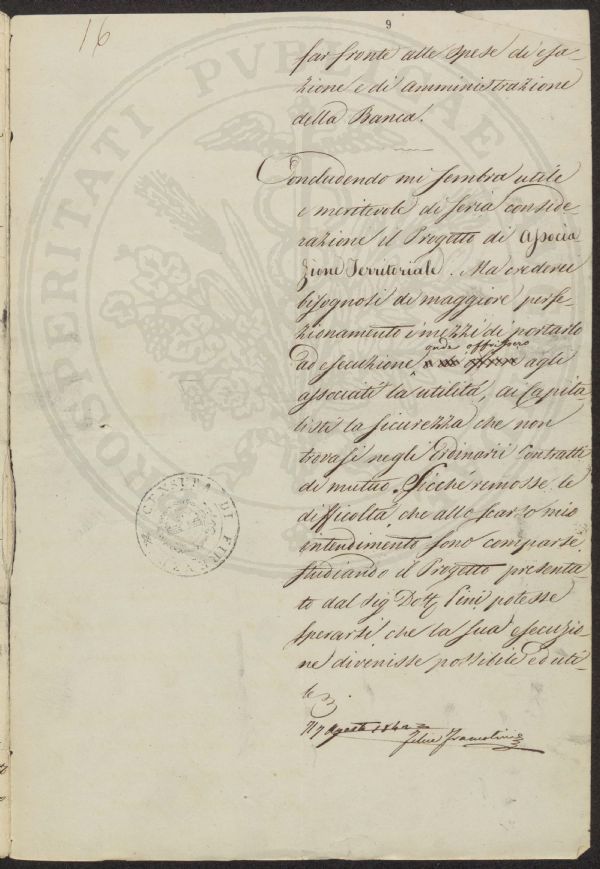 16
9
far fronte alle spese di esa-
zione e di amministrazione
della Banca.
Concludendo mi sembra utile
e meritevole di seria conside-
razione il Progetto di Associa
zione Territoriale. Ma crederei
bisognosi di maggiore perfe-
zionamento i mezzi di portarlo
onde offrissero
ad esecuzione agli
associati la utilità, ai Capita-
listi la sicurezza che non
trovasi negli ordinarii Contratti
di mutuo. Sicché remosse le
difficoltà, che allo scarso mio
intendimento sono comparse
studiando il Progetto presenta-
to dal Sig Dott Pini, potesse
sperarsi che la sua esecuzio-
ne divenisse possibile ed uti-
le.
Agosto 1842
Felice Francolini
PROSPERITATI PVBLICAE
CENSURA DI FIRENZE